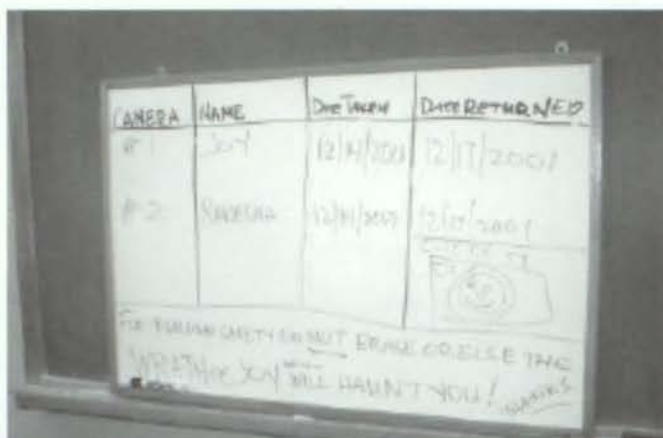 CAMERA NAME DATE TAKEN DATE RETURNED
#1 JOY 12/14/2001 12/17/2001
#2 12/14/2001 12/17/2001
FOR SAFETY DO NOT ERASE OR ELSE THE
WRATH OF JOY WILL HAUNT YOU! THANKS